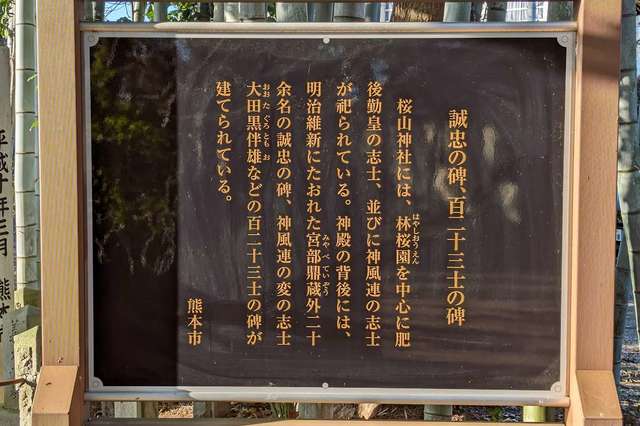 誠忠の碑、百二十三士の碑
桜山神社には、林桜園を中心に肥
はやしおうえん
後勤皇の志士、並びに神風連の志士
が祀られている。神殿の背後には、
明治維新にたおれた宮部鼎蔵外二十
みやべていぞう
余名の誠忠の碑、神風連の変の志士
大田黒伴雄などの百二十三士の碑が
おおたぐろともお
建てられている。
熊本市
平成十年三月